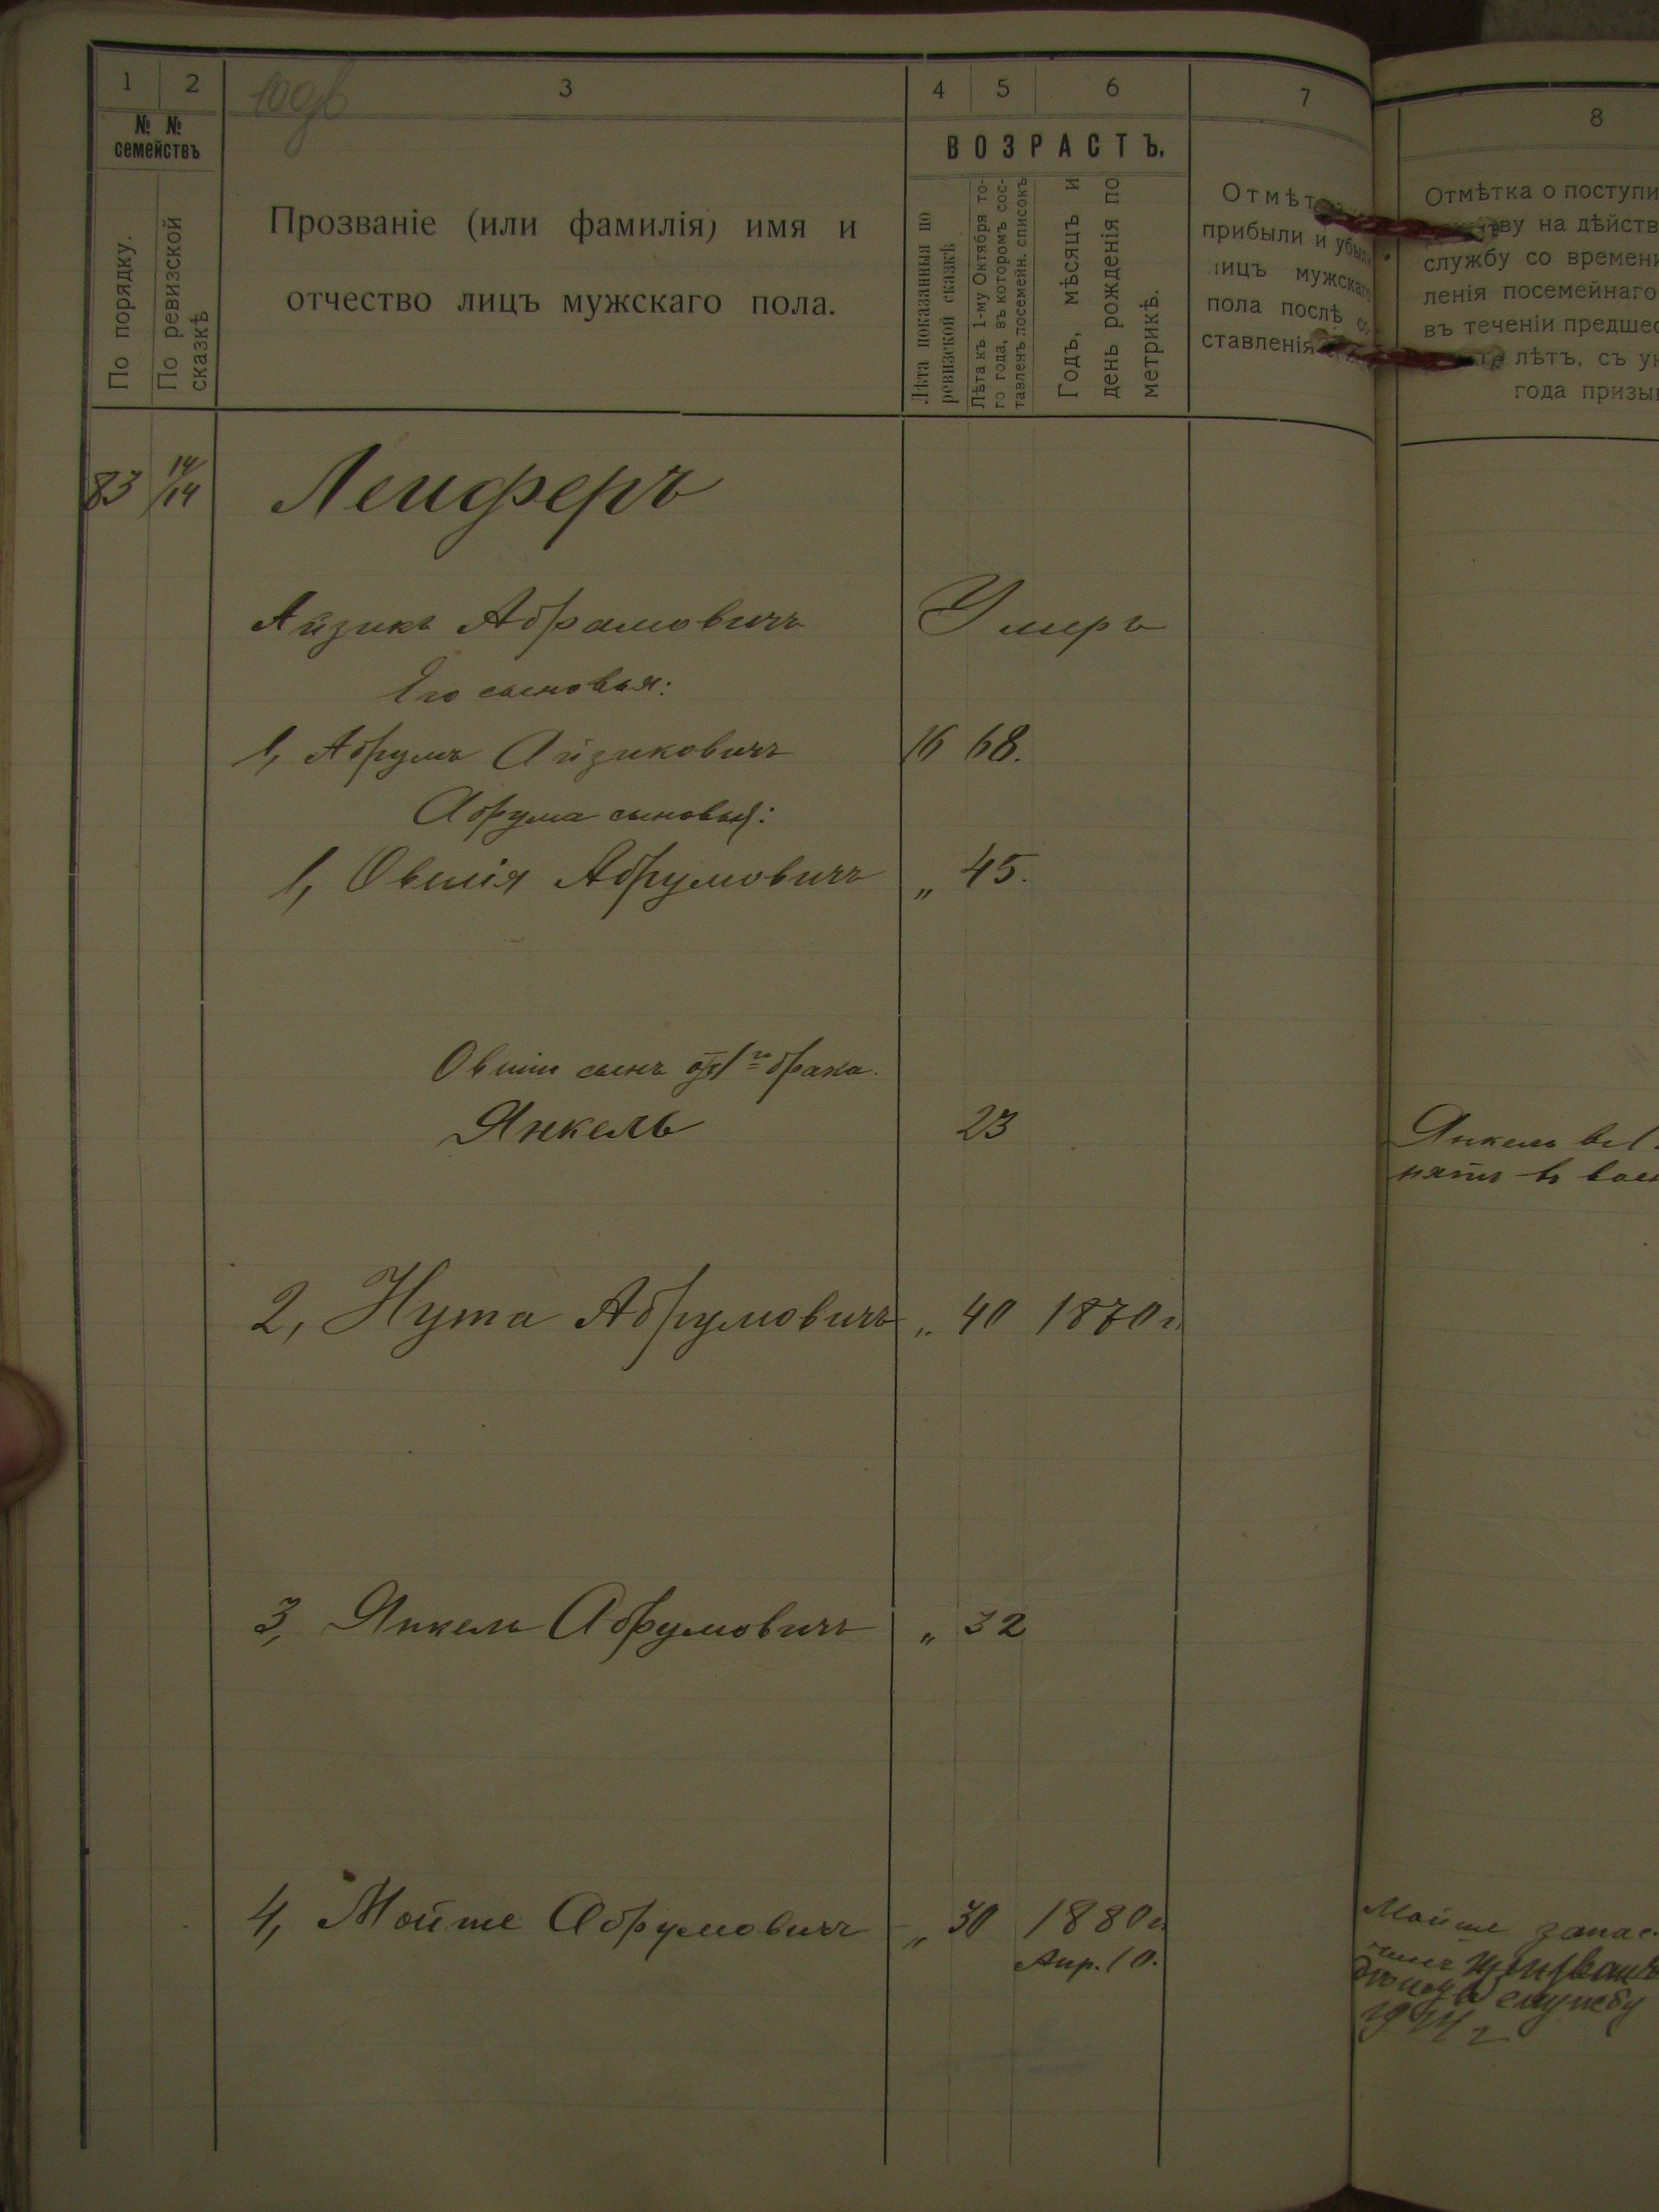 1 2 3 4 5 6 7 8
№ № семействъ
По порядку.
По ревизской сказкѣ
Прозваніе (или фамилія) имя и
отчество лицъ мужскаго пола.
ВОЗРАСТЪ.
Лѣта показанныя по ревизской сказкѣ
Лѣта къ 1-му Октября то-
го года, въ которомъ сос-
тавленъ посемейн. списокъ
Годъ, мѣсяцъ и
день рожденія по
метрикѣ.
прибыли и убыли
лицъ мужскаго
пола послѣ со-
ставленія
Отмѣтка о поступи
ву на дѣйств
службу со времени
ленія посемейнаго
въ теченіи предшес
лѣтъ, съ ук
года призы
83 14/14 Лейферъ
Айзикъ Абрамовичъ Умеръ
Его сыновья:
1, Абрумъ Айзиковичъ 16 68.
Абрума сыновья:
1, Овшія Абрумовичъ „ 45.
Овшіи сынъ отъ 1го брака.
Янкель 23
Янкель въ 1
нятъ въ воен
2, Нута Абрумовичъ „ 40 1870 г.
3, Янкель Абрумовичъ „ 32
4, Мойше Абрумовичъ „ 30 1880 г.
Апр. 10.
Мойше запас
призванъ
службу
1914 г